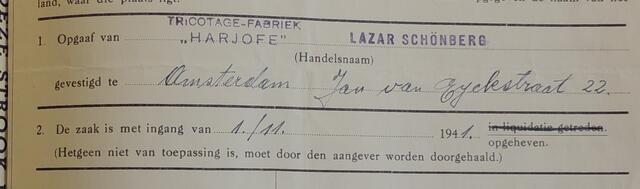 land, waar die plaats ligt.
TRICOTAGE-FABRIEK
1. Opgaaf van „HARJOFE” LAZAR SCHÖNBERG
(Handelsnaam)
gevestigd te Amsterdam Jan van Eyckstraat 22.
2. De zaak is met ingang van 1./11. 1941. in liquidatie getreden.
opgeheven.
(Hetgeen niet van toepassing is, moet door den aangever worden doorgehaald.)
DEZE STROOK